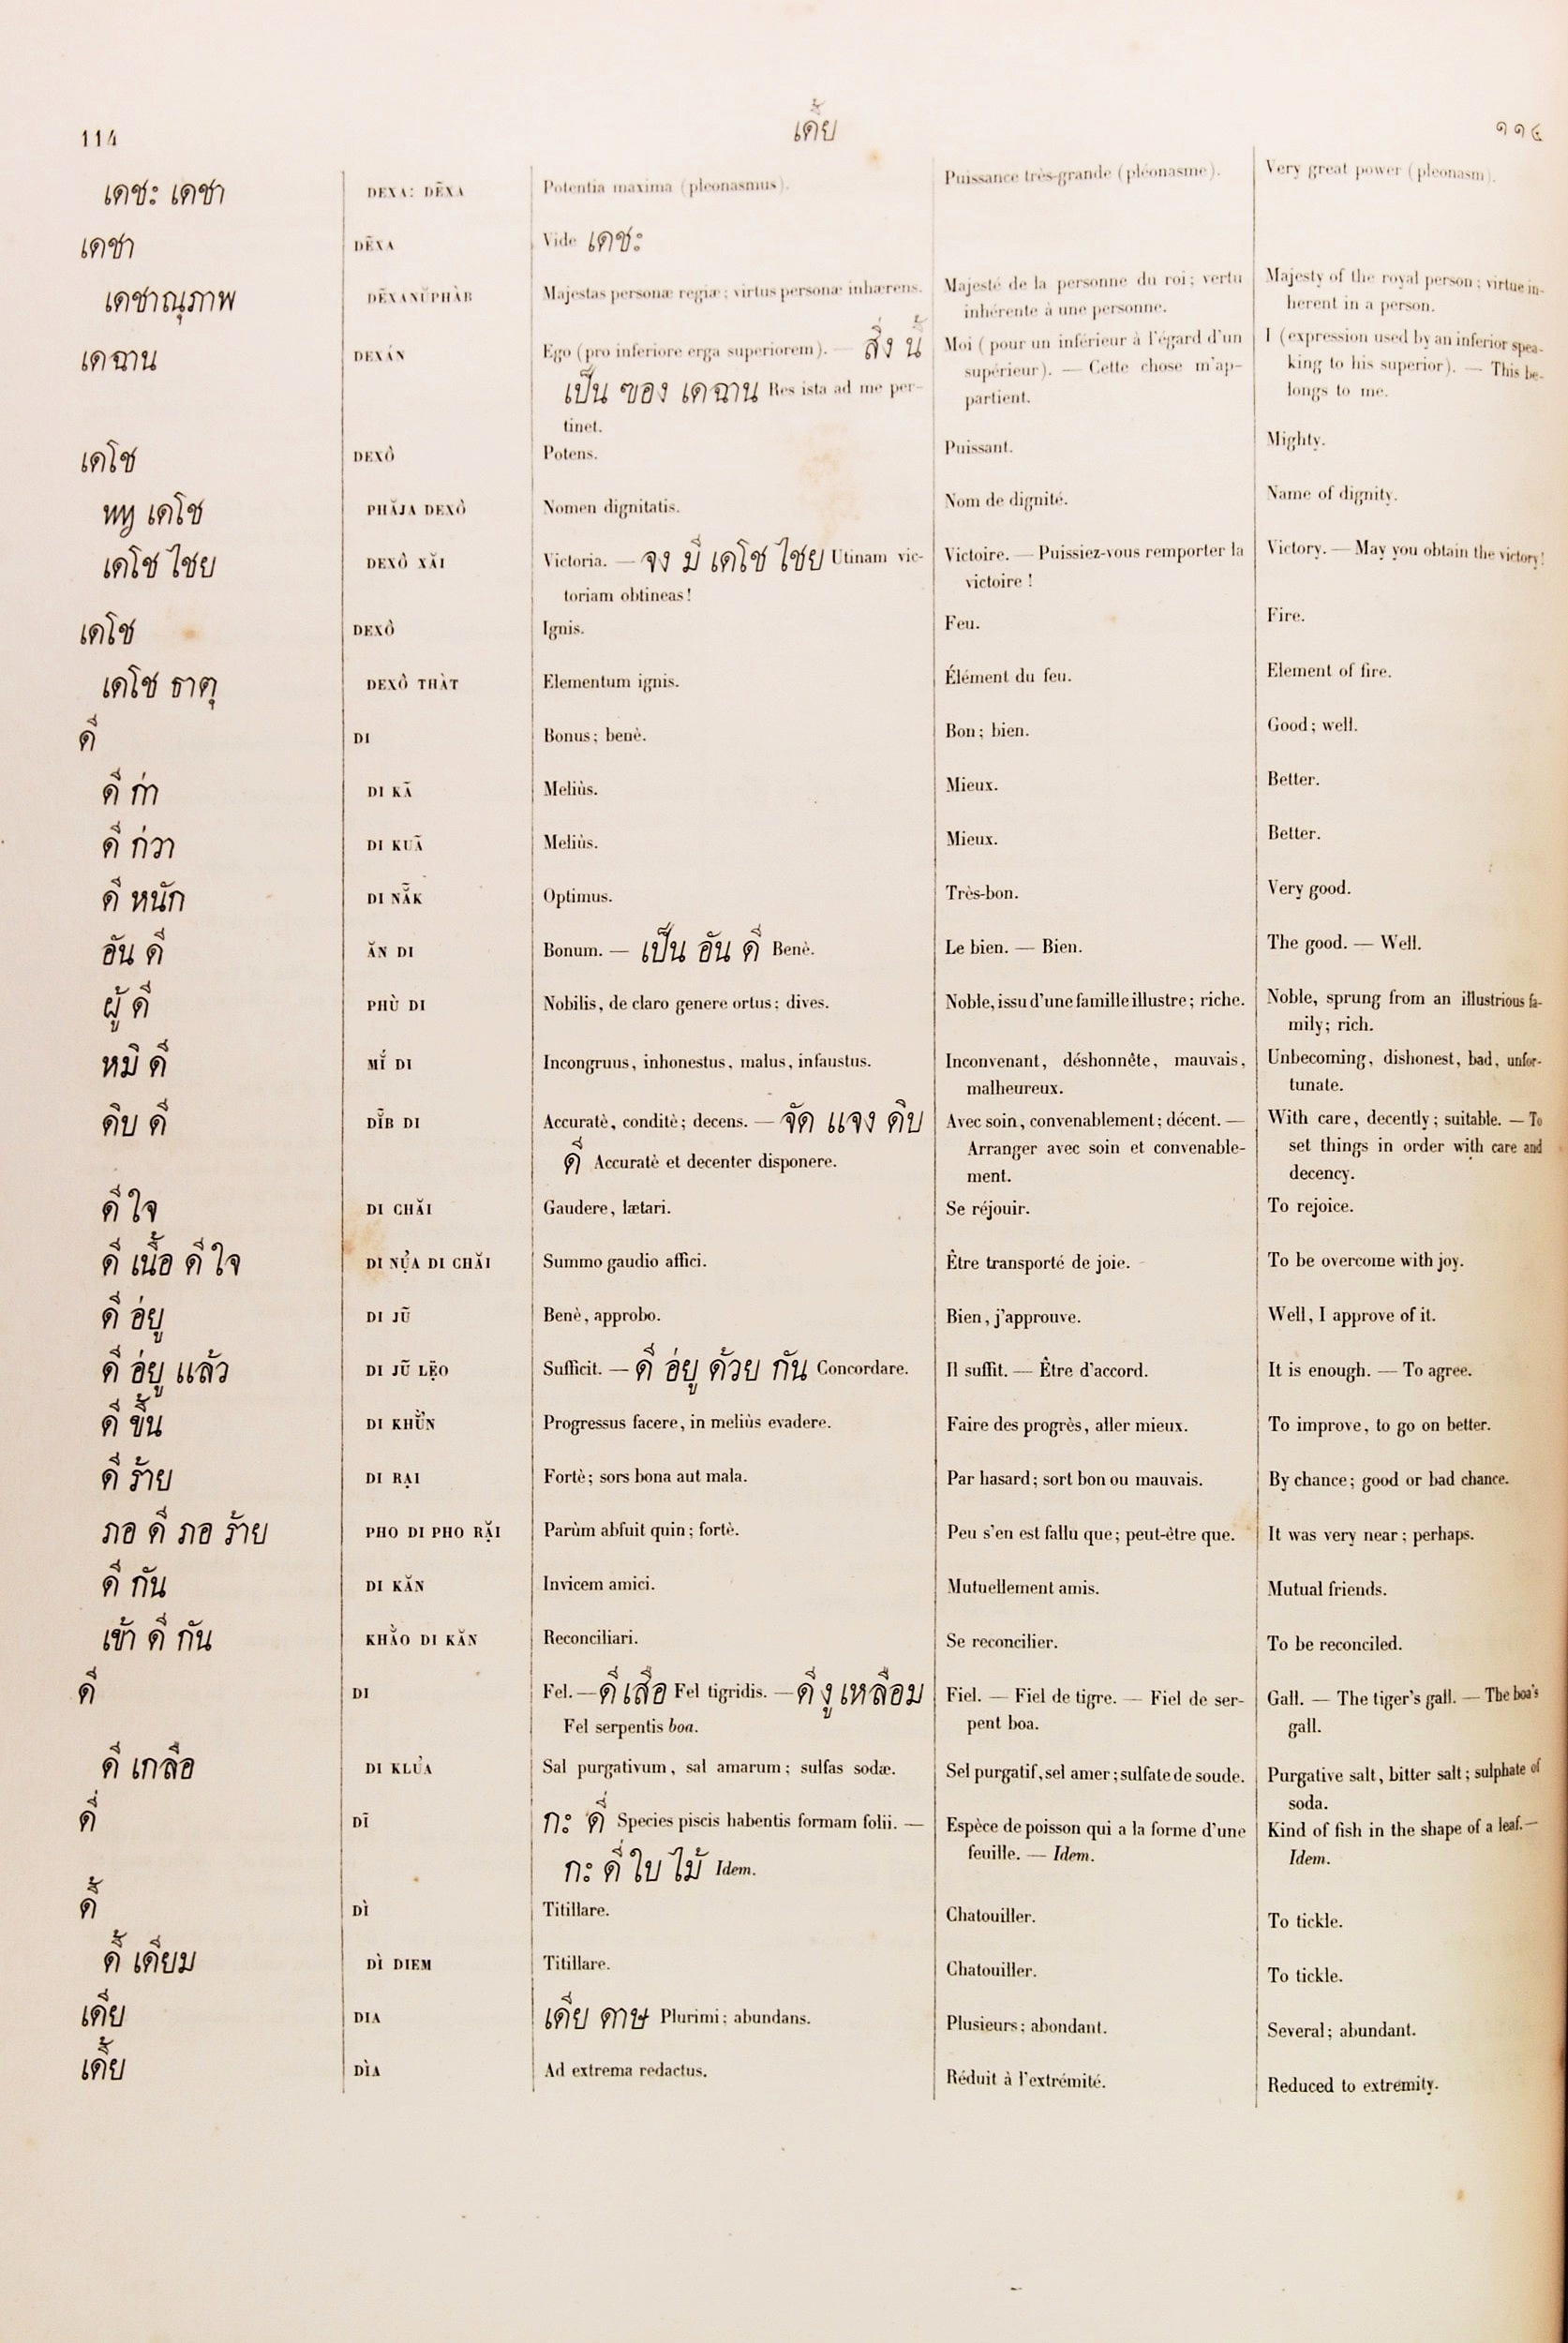 114 เดี้ย ๑๑๔
เดชะ เดชา DEXA: DĒXA Potentia maxima (pleonasmus). Puissance très-grande (pléonasme). Very great power (pleonasm).
เดชา DĒXA Vide เดชะ
เดชาณุภาพ DĒXANŬPHÀB Majestas personæ regiæ; virtus personæ inhærens. Majesté de la personne du roi; vertu Majesty of the royal person; virtue in-
inhérente à une personne. herent in a person.
เดฉาน DEXÁN Ego (pro inferiore erga superiorem). — สิ่ง นี้ Moi (pour un inférieur à l'égard d'un I (expression used by an inferior spea-
เป็น ฃอง เดฉาน Res ista ad me per- supérieur). — Cette chose m'ap- king to his superior). — This be-
tinet. partient. longs to me.
เดโช DEXÔ Potens. Puissant. Mighty.
พญ เดโช PHĂJA DEXÔ Nomen dignitatis. Nom de dignité. Name of dignity.
เดโช ไชย DEXÔ XĂI Victoria. — จง มี เดโช ไชย Utinam vic- Victoire. — Puissiez-vous remporter la Victory. — May you obtain the victory!
toriam obtineas! victoire !
เดโช DEXÔ Ignis. Feu. Fire.
เดโช ธาตุ DEXÔ THÀT Elementum ignis. Élément du feu. Element of fire.
ดี DI Bonus; benè. Bon; bien. Good; well.
ดี ก่า DI KÃ Meliùs. Mieux. Better.
ดี ก่วา DI KUÃ Meliùs. Mieux. Better.
ดี หนัก DI NẴK Optimus. Très-bon. Very good.
อัน ดี ĂN DI Bonum. — เป็น อัน ดี Benè. Le bien. — Bien. The good. — Well.
ผู้ ดี PHÙ DI Nobilis, de claro genere ortus; dives. Noble, issu d'une famille illustre; riche. Noble, sprung from an illustrious fa-
mily; rich.
หมิ ดี MĬ́ DI Incongruus, inhonestus, malus, infaustus. Inconvenant, déshonnête, mauvais, Unbecoming, dishonest, bad, unfor-
malheureux. tunate.
ดิบ ดี DĬ̄B DI Accuratè, conditè; decens. — จัด แจง ดิบ Avec soin, convenablement; décent. — With care, decently; suitable. — To
ดี Accuratè et decenter disponere. Arranger avec soin et convenable- set things in order with care and
ment. decency.
ดี ใจ DI CHĂI Gaudere, lætari. Se réjouir. To rejoice.
ดี เนื้อ ดี ใจ DI NỤ̉A DI CHĂI Summo gaudio affici. Être transporté de joie. To be overcome with joy.
ดี อ่ยู DI JŨ Benè, approbo. Bien, j'approuve. Well, I approve of it.
ดี อ่ยู แล้ว DI JŨ LẸ̄O Sufficit. — ดี อ่ยู ด้วย กัน Concordare. Il suffit. — Être d'accord. It is enough. — To agree.
ดี ขึ้น DI KHỦ̆̀N Progressus facere, in meliùs evadere. Faire des progrès, aller mieux. To improve, to go on better.
ดี ร้าย DI RẠI Fortè; sors bona aut mala. Par hasard; sort bon ou mauvais. By chance; good or bad chance.
ภอ ดี ภอ ร้าย PHO DI PHO RẶI Parùm abfuit quin; fortè. Peu s'en est fallu que; peut-être que. It was very near; perhaps.
ดี กัน DI KĂN Invicem amici. Mutuellement amis. Mutual friends.
เข้า ดี กัน KHẰO DI KĂN Reconciliari. Se reconcilier. To be reconciled.
ดี DI Fel. — ดี เสือ Fel tigridis. — ดี งู เหลือม Fiel. — Fiel de tigre. — Fiel de ser- Gall. — The tiger's gall. — The boa's
Fel serpentis boa. pent boa. gall.
ดี เกลือ DI KLỦA Sal purgativum, sal amarum; sulfas sodæ. Sel purgatif, sel amer; sulfate de soude. Purgative salt, bitter salt; sulphate of
soda.
ดี่ DĪ กะ ดี่ Species piscis habentis formam folii. — Espèce de poisson qui a la forme d'une Kind of fish in the shape of a leaf. —
กะ ดี่ ใบ ไม้ Idem. feuille. — Idem. Idem.
ดี้ DÌ Titillare. Chatouiller. To tickle.
ดี้ เดียม DÌ DIEM Titillare. Chatouiller. To tickle.
เดีย DIA เดีย ดาษ Plurimi; abundans. Plusieurs; abondant. Several; abundant.
เดี้ย DÌA Ad extrema redactus. Réduit à l'extrémité. Reduced to extremity.